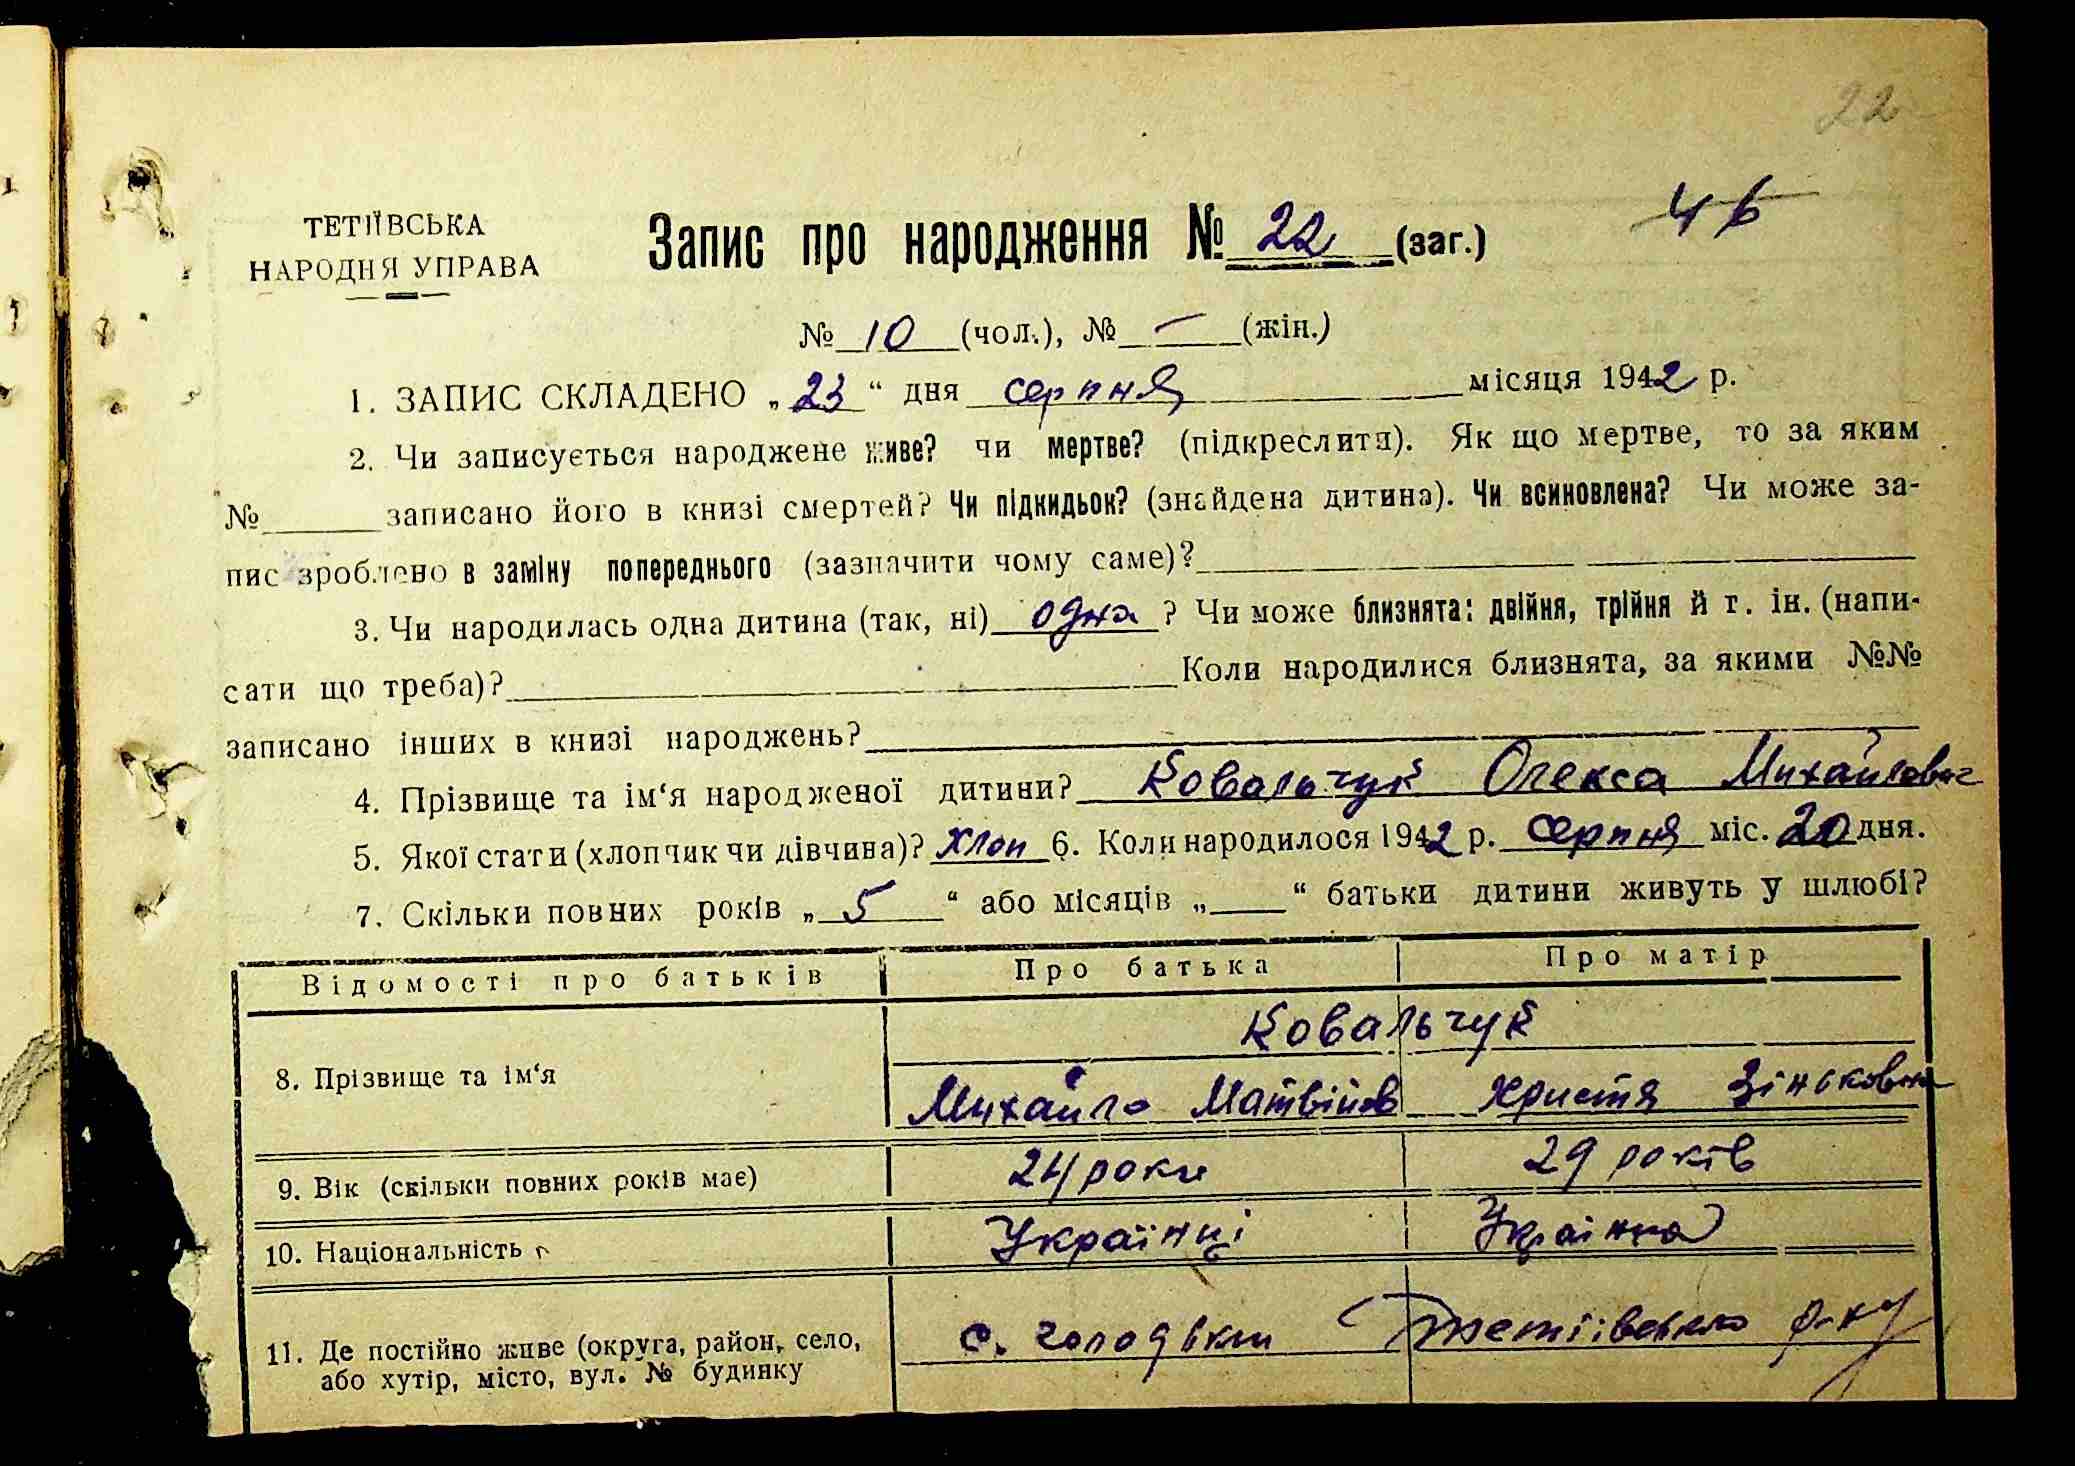 22
46
ТЕТІЇВСЬКА
НАРОДНЯ УПРАВА
Запис про народження № 22 (заг.)
№ 10 (чол.), № — (жін.)
1. ЗАПИС СКЛАДЕНО „23“ дня серпня місяця 1942 р.
2. Чи записується народжене живе? чи мертве? (підкреслити). Як що мертве, то за яким
№ записано його в книзі смертей? Чи підкидьок? (знайдена дитина). Чи всиновлена? Чи може за-
пис зроблено в заміну попереднього (зазначити чому саме)?
3. Чи народилась одна дитина (так, ні) одна ? Чи може близнята: двійня, трійня й т. ін. (напи-
сати що треба)? Коли народилися близнята, за якими №№
записано інших в книзі народжень?
4. Прізвище та ім‘я народженої дитини? Ковальчук Олекса Михайлович
5. Якої стати (хлопчик чи дівчина)? хлоп 6. Коли народилося 1942 р. серпня міс. 20 дня.
7. Скільки повних років „5“ або місяців „ “ батьки дитини живуть у шлюбі?
Відомості про батьків Про батька Про матір
Ковальчук
8. Прізвище та ім‘я
Михайло Матвійов Христя Зіньковна
9. Вік (скільки повних років має) 24 роки 29 років
10. Національність Українці Українка
11. Де постійно живе (округа, район, село, с. Голодьки Тетіївського р-ну
або хутір, місто, вул. № будинку